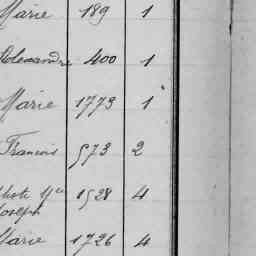 Marie 189 1
Alexandre 400 1
Marie 1773 1
Francois 573 2
1528 4
Joseph
Marie 1726 4